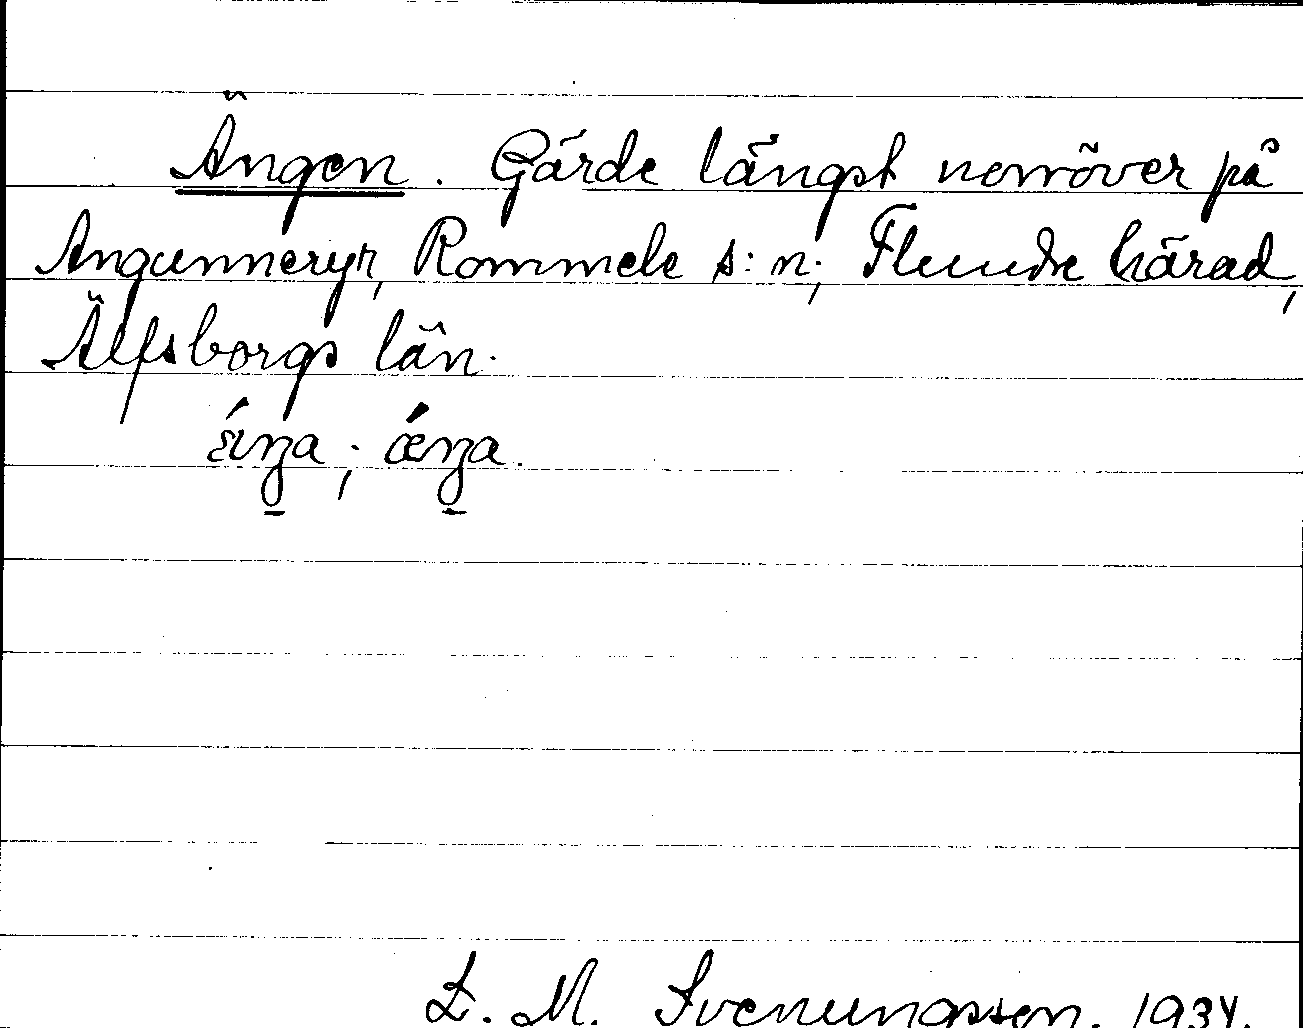 Ängen. Gärde längst norröver på
Angunneryr, Rommele s:n, Flundre härad,
Älfsborgs län.
L. M. Svenungsson. 1934.